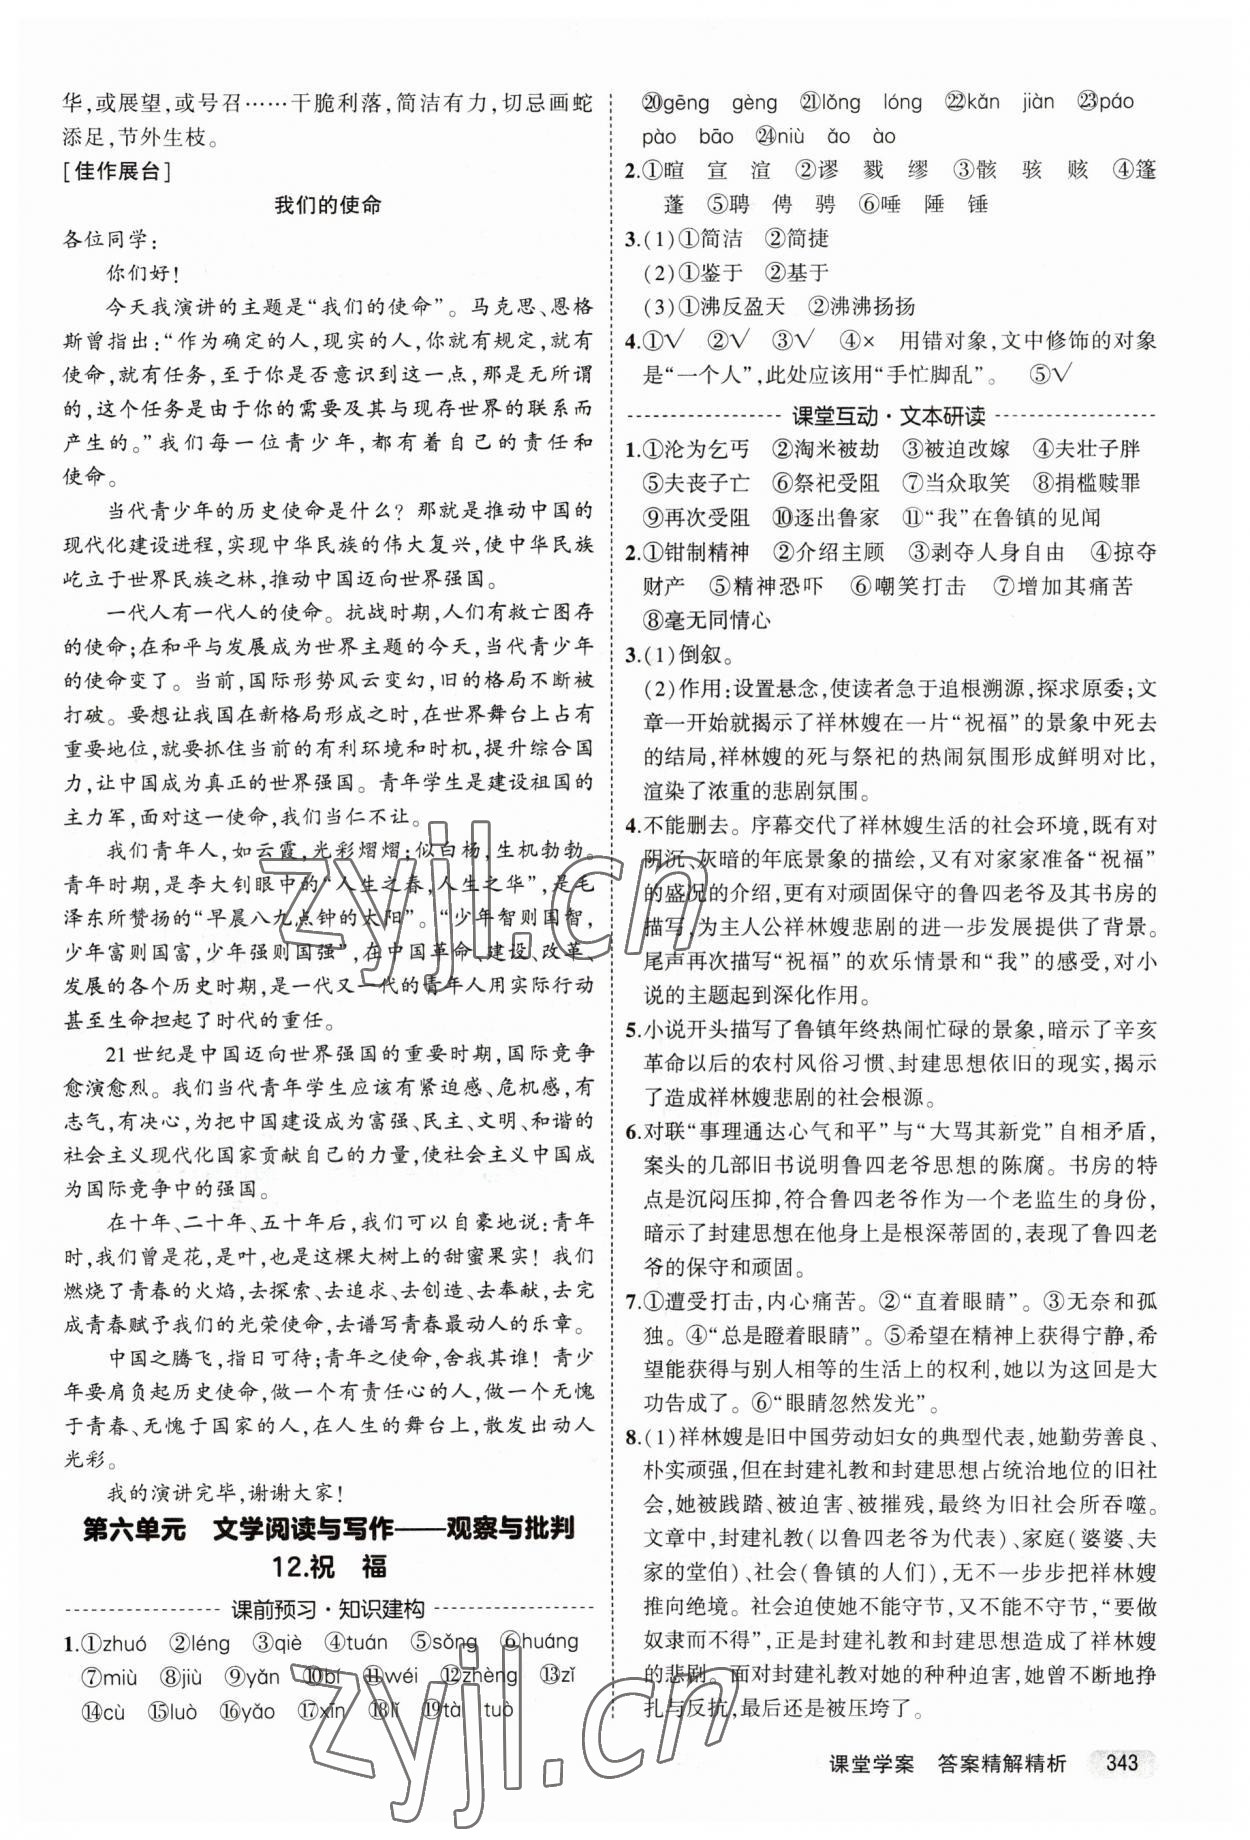 华,或展望,或号召……干脆利落,简洁有力,切忌画蛇
添足,节外生枝。
[佳作展台]
我们的使命
各位同学:
你们好!
今天我演讲的主题是“我们的使命”。马克思、恩格
斯曾指出:“作为确定的人,现实的人,你就有规定,就有
使命,就有任务,至于你是否意识到这一点,那是无所谓
的,这个任务是由于你的需要及其与现存世界的联系而
产生的。”我们每一位青少年,都有着自己的责任和
使命。
当代青少年的历史使命是什么?那就是推动中国的
现代化建设进程,实现中华民族的伟大复兴,使中华民族
屹立于世界民族之林,推动中国迈向世界强国。
一代人有一代人的使命。抗战时期,人们有救亡图存
的使命;在和平与发展成为世界主题的今天,当代青少年
的使命变了。当前,国际形势风云变幻,旧的格局不断被
打破。要想让我国在新格局形成之时,在世界舞台上占有
重要地位,就要抓住当前的有利环境和时机,提升综合国
力,让中国成为真正的世界强国。青年学生是建设祖国的
主力军,面对这一使命,我们当仁不让。
我们青年人,如云霞,光彩熠熠;似白杨,生机勃勃。
青年时期,是李大钊眼中的“人生之春,人生之华”,是毛
泽东所赞扬的“早晨八九点钟的太阳”。“少年智则国智,
少年富则国富,少年强则国强”,在中国革命、建设、改革、
发展的各个历史时期,是一代又一代的青年人用实际行动
甚至生命担起了时代的重任。
21世纪是中国迈向世界强国的重要时期,国际竞争
愈演愈烈。我们当代青年学生应该有紧迫感、危机感,有
志气,有决心,为把中国建设成为富强、民主、文明、和谐的
社会主义现代化国家贡献自己的力量,使社会主义中国成
为国际竞争中的强国。
在十年、二十年、五十年后,我们可以自豪地说:青年
时,我们曾是花,是叶,也是这棵大树上的甜蜜果实!我们
燃烧了青春的火焰,去探索、去追求、去创造、去奉献,去完
成青春赋予我们的光荣使命,去谱写青春最动人的乐章。
中国之腾飞,指日可待;青年之使命,舍我其谁!青少
年要肩负起历史使命,做一个有责任心的人,做一个无愧
于青春、无愧于国家的人,在人生的舞台上,散发出动人
光彩。
我的演讲完毕,谢谢大家!
第六单元 文学阅读与写作——观察与批判
12.祝 福
课前预习·知识建构
1.①zhuó ②léng ③qiè ④tuán ⑤sǒng ⑥huáng
⑦miù ⑧jiù ⑨yǎn ⑩bí ⑪wéi ⑫zhèng ⑬zǐ
⑭cù ⑮luò ⑯yǎo ⑰xīn ⑱lǐ ⑲tà tuò
⑳gēng gèng ㉑lǒng lóng ㉒kǎn jiàn ㉓páo
pào bāo ㉔niù ǎo ào
2.①暄 宣 渲 ②谬 戮 缪 ③骸 骇 赅 ④篷
蓬 ⑤聘 俜 骋 ⑥唾 陲 锤
3.(1)①简洁 ②简捷
(2)①鉴于 ②基于
(3)①沸反盈天 ②沸沸扬扬
4.①√ ②√ ③√ ④× 用错对象,文中修饰的对象
是“一个人”,此处应该用“手忙脚乱”。 ⑤√
课堂互动·文本研读
1.①沦为乞丐 ②淘米被劫 ③被迫改嫁 ④夫壮子胖
⑤夫丧子亡 ⑥祭祀受阻 ⑦当众取笑 ⑧捐槛赎罪
⑨再次受阻 ⑩逐出鲁家 ⑪“我”在鲁镇的见闻
2.①钳制精神 ②介绍主顾 ③剥夺人身自由 ④掠夺
财产 ⑤精神恐吓 ⑥嘲笑打击 ⑦增加其痛苦
⑧毫无同情心
3.(1)倒叙。
(2)作用:设置悬念,使读者急于追根溯源,探求原委;文
章一开始就揭示了祥林嫂在一片“祝福”的景象中死去
的结局,祥林嫂的死与祭祀的热闹氛围形成鲜明对比,
渲染了浓重的悲剧氛围。
4.不能删去。序幕交代了祥林嫂生活的社会环境,既有对
阴沉、灰暗的年底景象的描绘,又有对家家准备“祝福”
的盛况的介绍,更有对顽固保守的鲁四老爷及其书房的
描写,为主人公祥林嫂悲剧的进一步发展提供了背景。
尾声再次描写“祝福”的欢乐情景和“我”的感受,对小
说的主题起到深化作用。
5.小说开头描写了鲁镇年终热闹忙碌的景象,暗示了辛亥
革命以后的农村风俗习惯、封建思想依旧的现实,揭示
了造成祥林嫂悲剧的社会根源。
6.对联“事理通达心气和平”与“大骂其新党”自相矛盾,
案头的几部旧书说明鲁四老爷思想的陈腐。书房的特
点是沉闷压抑,符合鲁四老爷作为一个老监生的身份,
暗示了封建思想在他身上是根深蒂固的,表现了鲁四老
爷的保守和顽固。
7.①遭受打击,内心痛苦。②“直着眼睛”。③无奈和孤
独。④“总是瞪着眼睛”。⑤希望在精神上获得宁静,希
望能获得与别人相等的生活上的权利,她以为这回是大
功告成了。⑥“眼睛忽然发光”。
8.(1)祥林嫂是旧中国劳动妇女的典型代表,她勤劳善良、
朴实顽强,但在封建礼教和封建思想占统治地位的旧社
会,她被践踏、被迫害、被摧残,最终为旧社会所吞噬。
文章中,封建礼教(以鲁四老爷为代表)、家庭(婆婆、夫
家的堂伯)、社会(鲁镇的人们),无不一步一步将祥林嫂
推向绝境。社会迫使她不能守节,又不能不守节,“要做
奴隶而不得”,正是封建礼教和封建思想造成了祥林嫂
的悲剧。面对封建礼教对她的种种迫害,她曾不断地挣
扎与反抗,最后还是被压垮了。
课堂学案 答案精解精析 343
zyjl.cn
zyjl.cn